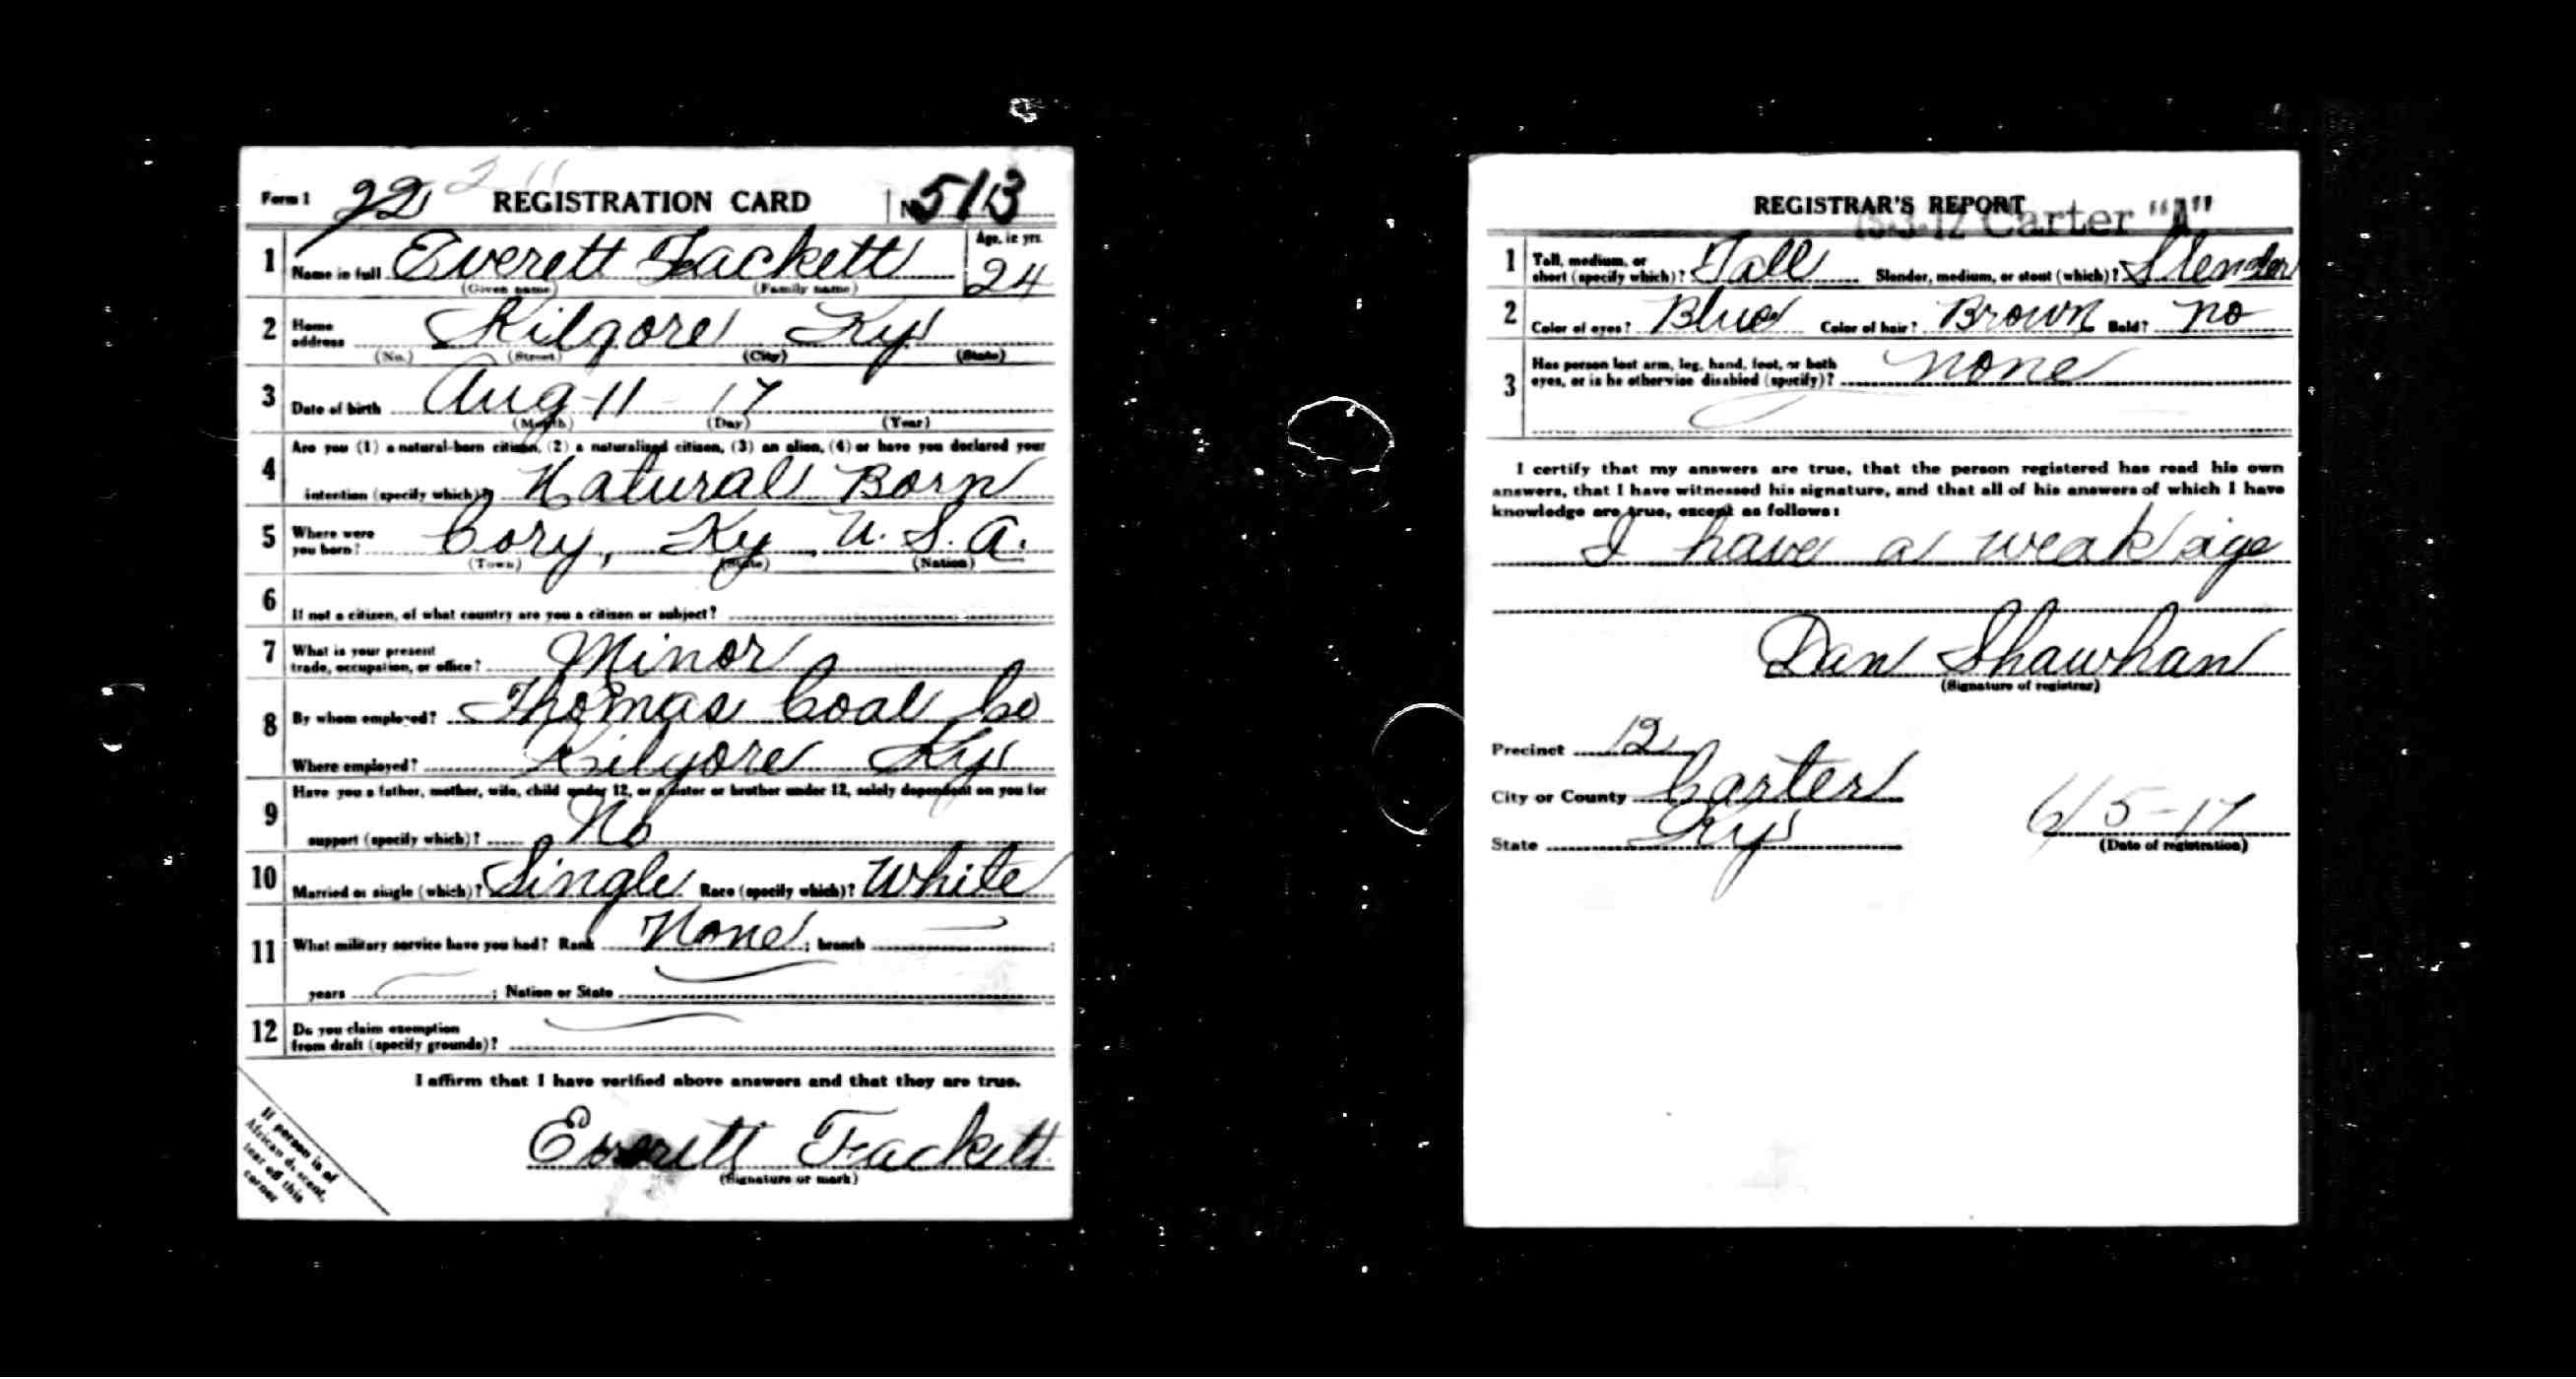 Form 1 22 REGISTRATION CARD No. 513
1 Name in full Everett Fackett Age, in yrs. 24
(Given name) (Family name)
2 Home address Kilgore Ky
(No.) (Street) (City) (State)
3 Date of birth Aug - 11 - 17
(Month) (Day) (Year)
4 Are you (1) a natural-born citizen, (2) a naturalized citizen, (3) an alien, (4) or have you declared your
intention (specify which)? Natural Born
5 Where were you born? Cory, Ky, U.S.A.
(Town) (State) (Nation)
6 If not a citizen, of what country are you a citizen or subject?
7 What is your present trade, occupation, or office? Minor
8 By whom employed? Thomas Coal Co
Where employed? Kilgore Ky
9 Have you a father, mother, wife, child under 12, or a sister or brother under 12, solely dependent on you for
support (specify which)? No
10 Married or single (which)? Single Race (specify which)? White
11 What military service have you had? Rank None ; branch ;
years ; Nation or State
12 Do you claim exemption from draft (specify grounds)?
I affirm that I have verified above answers and that they are true.
Everett Fackett
(Signature or mark)
If person is of
African descent,
tear off this
corner
REGISTRAR'S REPORT
Carter "A"
1 Tall, medium, or short (specify which)? Tall Slender, medium, or stout (which)? Slender
2 Color of eyes? Blue Color of hair? Brown Bald? no
3 Has person lost arm, leg, hand, foot, or both
eyes, or is he otherwise disabled (specify)? none
I certify that my answers are true, that the person registered has read his own
answers, that I have witnessed his signature, and that all of his answers of which I have
knowledge are true, except as follows:
I have a weak eye
Dan Shawhan
(Signature of registrar)
Precinct 12
City or County Carter
State Ky
6/5-17
(Date of registration)